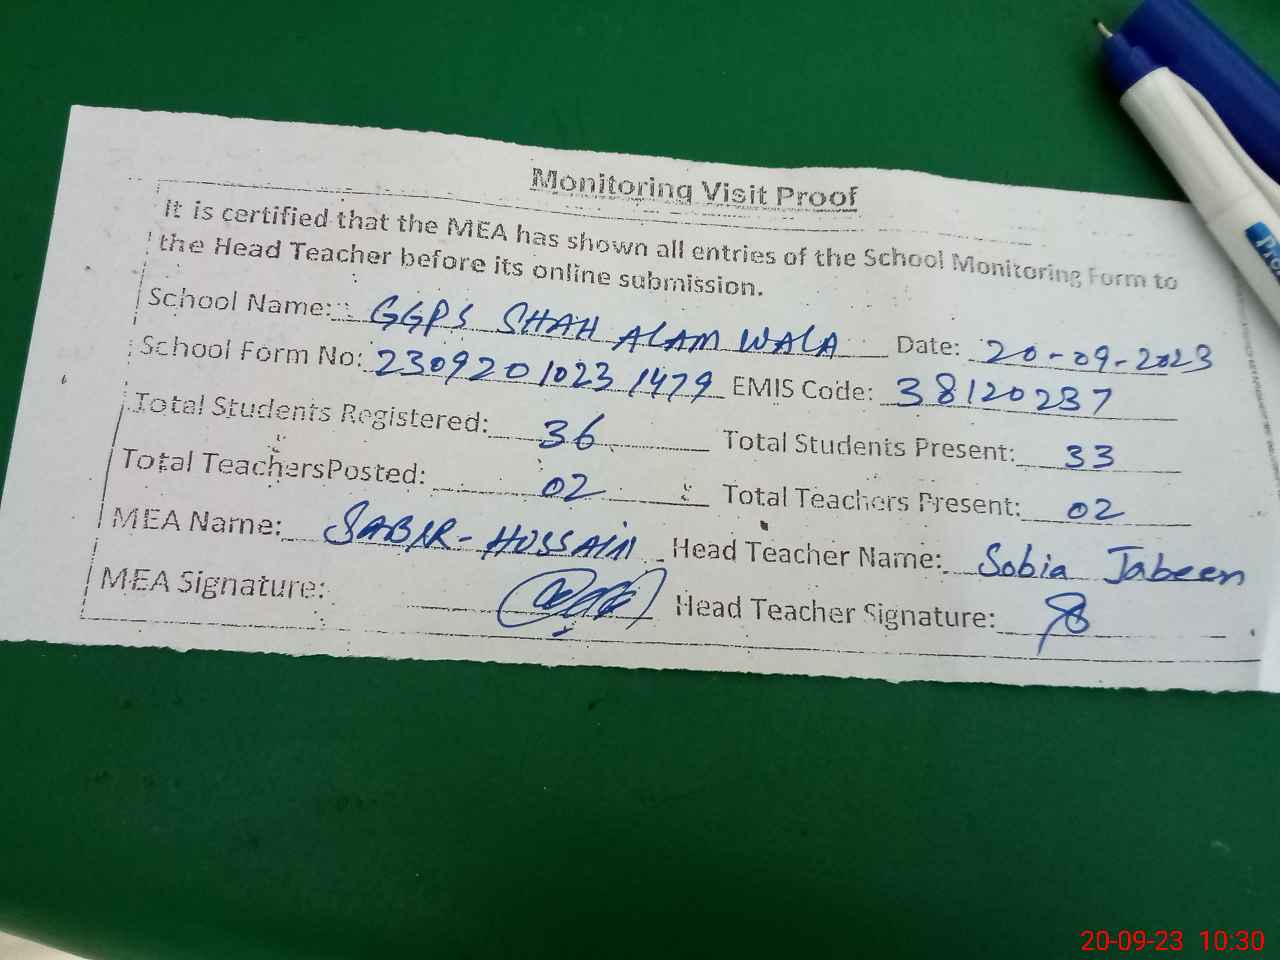 Monitoring Visit Proof
It is certified that the MEA has shown all entries of the School Monitoring Form to
the Head Teacher before its online submission.
School Name: GGPS SHAH ALAM WALA Date: 20-09-2023
School Form No: 2309201023 1479 EMIS Code: 38120237
Total Students Registered: 36 Total Students Present: 33
Total TeachersPosted: 02 Total Teachers Present: 02
MEA Name: SABIR-HUSSAIN Head Teacher Name: Sobia Jabeen
MEA Signature: Head Teacher Signature:
20-09-23 10:30